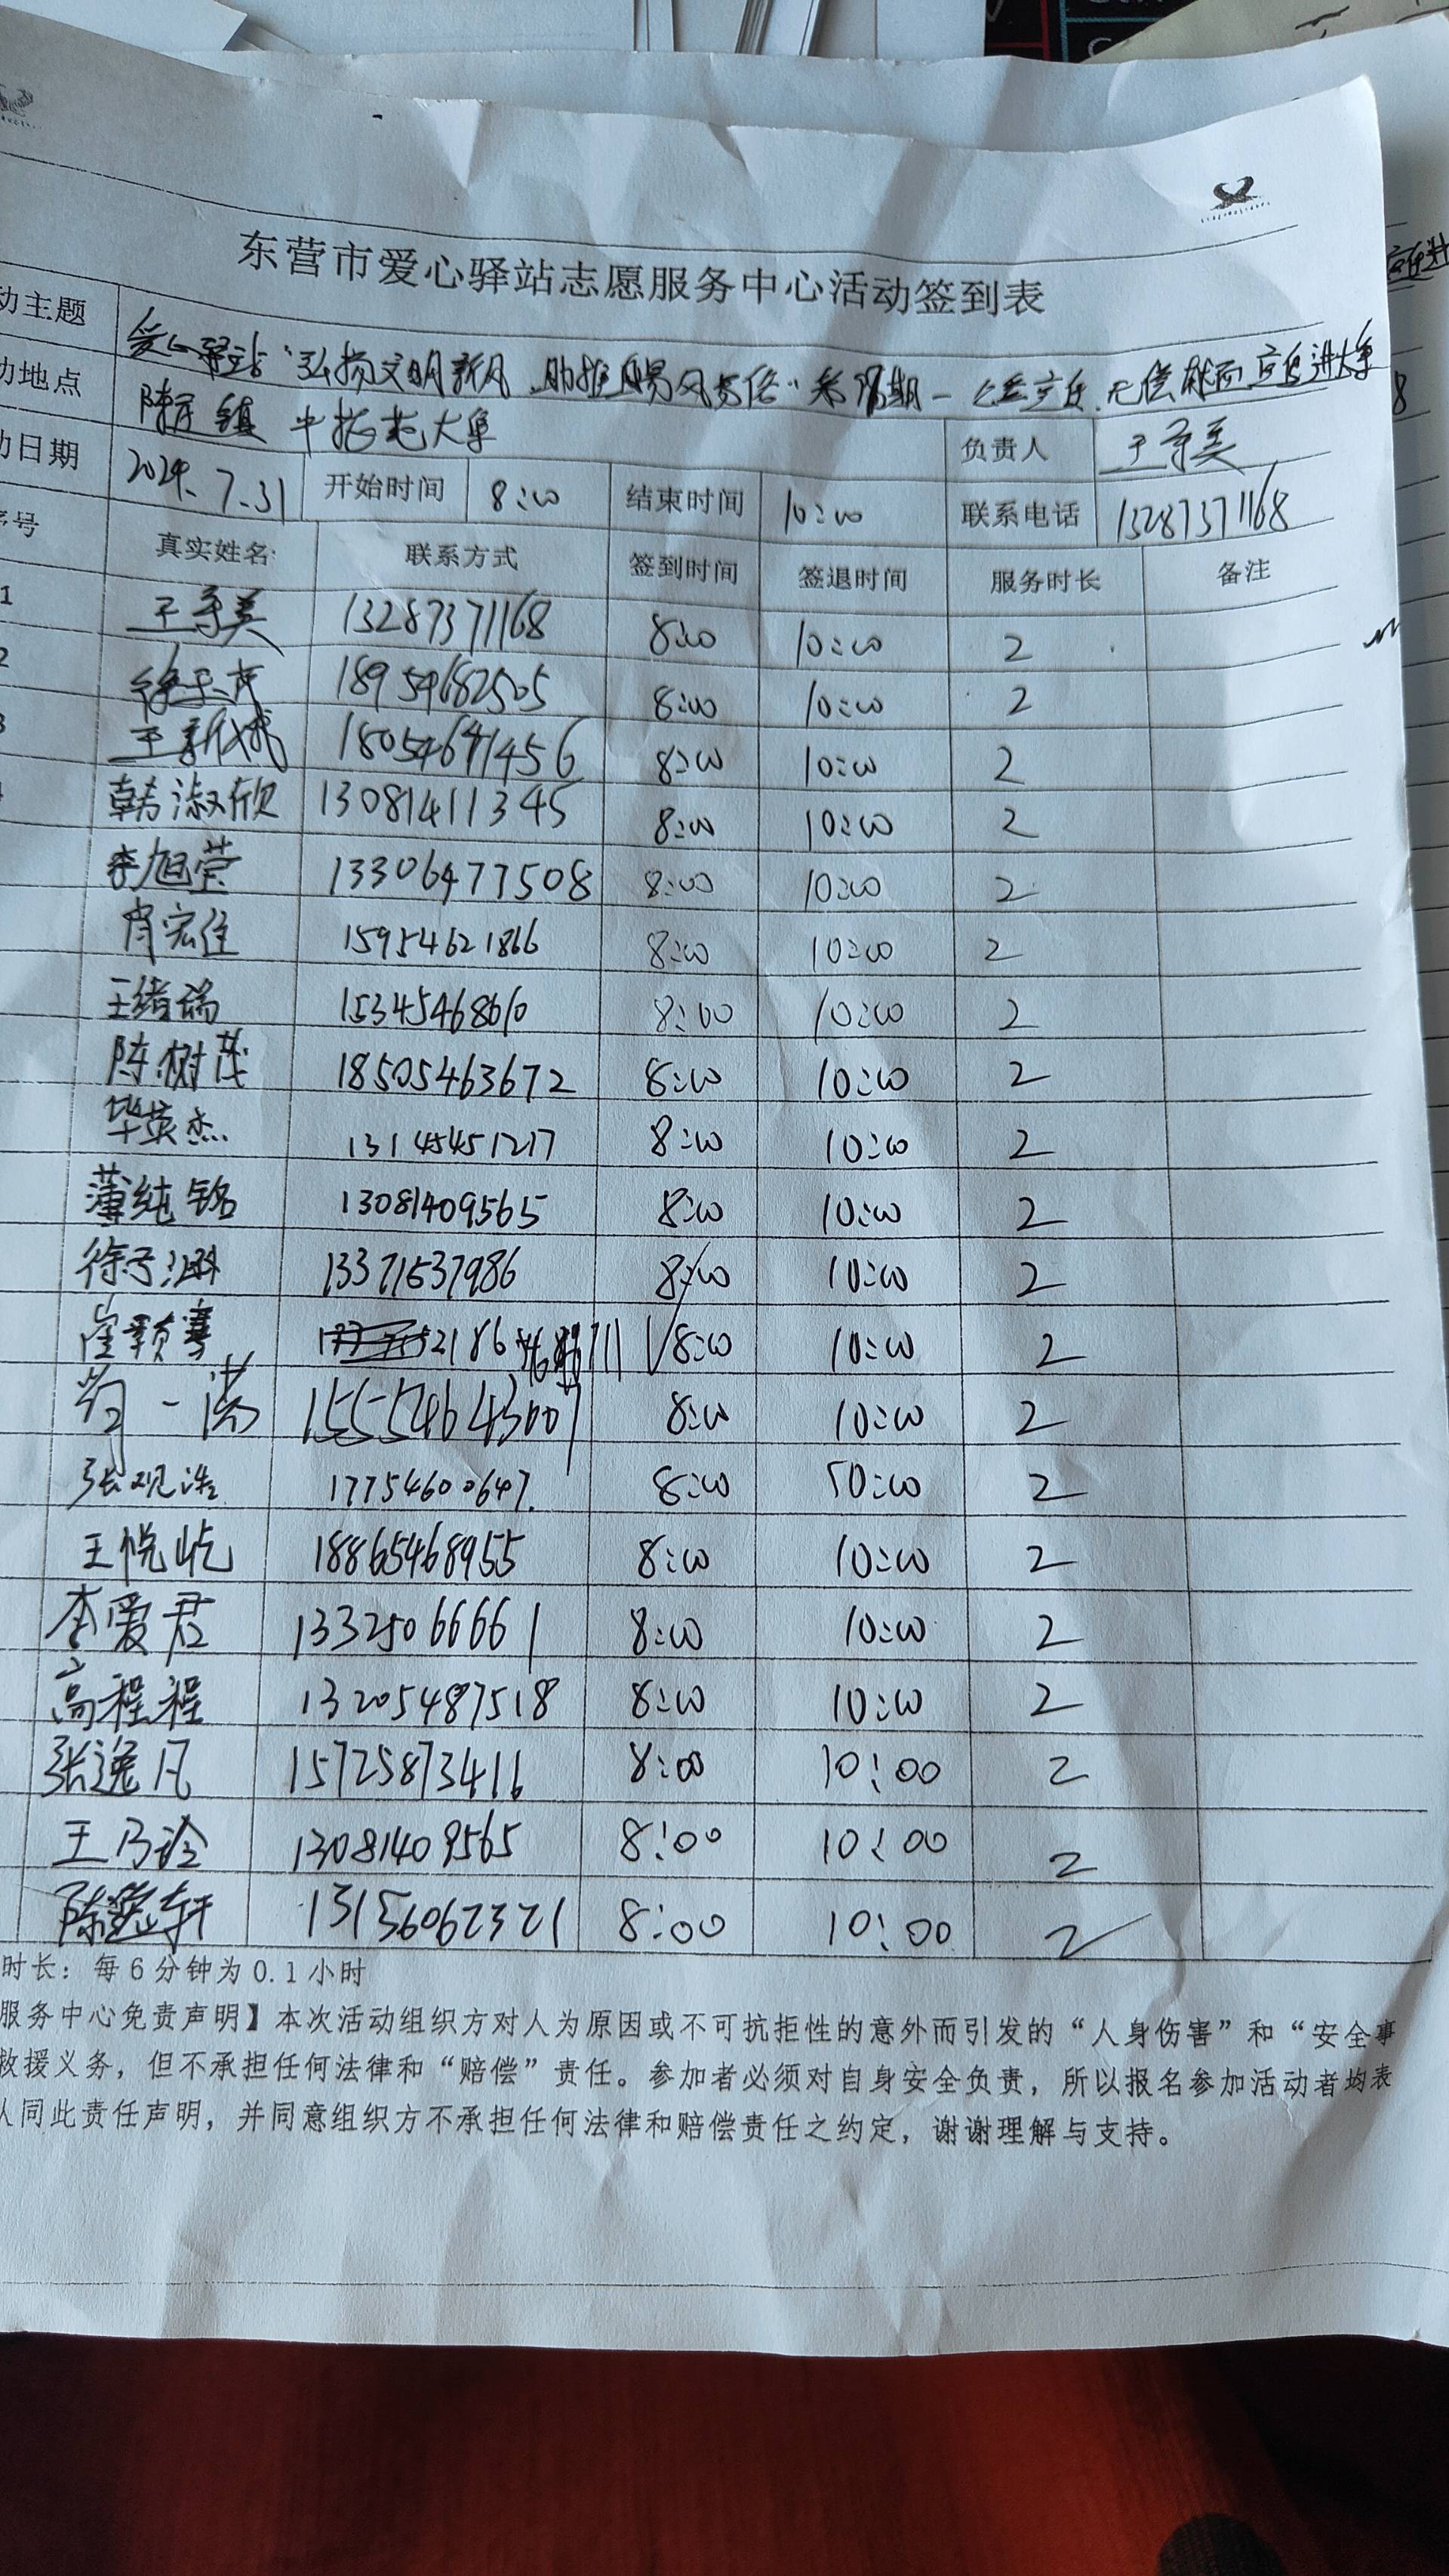 东营市爱心驿站志愿服务中心活动签到表
动主题 爱心驿站"弘扬文明新风 助推移风易俗" 无偿献血 应急进大集
动地点 中 大集 负责人 王
动日期 2024.7.31 开始时间 8:00 结束时间 10:00 联系电话 13287371168
序号 真实姓名: 联系方式 签到时间 签退时间 服务时长 备注
1 王 美 13287371168 8:00 10:00 2
2 18954682505 8:00 10:00 2
3 王新斌 18054641456 8:00 10:00 2
韩淑欣 13081411345 8:00 10:00 2
李旭莹 13306477508 8:00 10:00 2
肖宏佳 15954621866 8:00 10:00 2
王绪瑞 15345468610 8:00 10:00 2
陈树茂 18505463672 8:00 10:00 2
毕英杰 13145451217 8:00 10:00 2
薄纯铭 13081409565 8:00 10:00 2
徐子涵 13371537986 8:00 10:00 2
崔颖骞 8:00 10:00 2
苟一诺 8:00 10:00 2
张观浩 17754600647. 8:00 10:00 2
王悦屹 18865468955 8:00 10:00 2
李爱君 13325066661 8:00 10:00 2
高程程 13205487518 8:00 10:00 2
张逸凡 15725873416 8:00 10:00 2
王乃玲 13081409565 8:00 10:00 2
陈逸轩 13156062321 8:00 10:00 2
时长：每6分钟为0.1小时
服务中心免责声明】本次活动组织方对人为原因或不可抗拒性的意外而引发的“人身伤害”和“安全事
救援义务，但不承担任何法律和“赔偿”责任。参加者必须对自身安全负责，所以报名参加活动者均表
认同此责任声明，并同意组织方不承担任何法律和赔偿责任之约定，谢谢理解与支持。